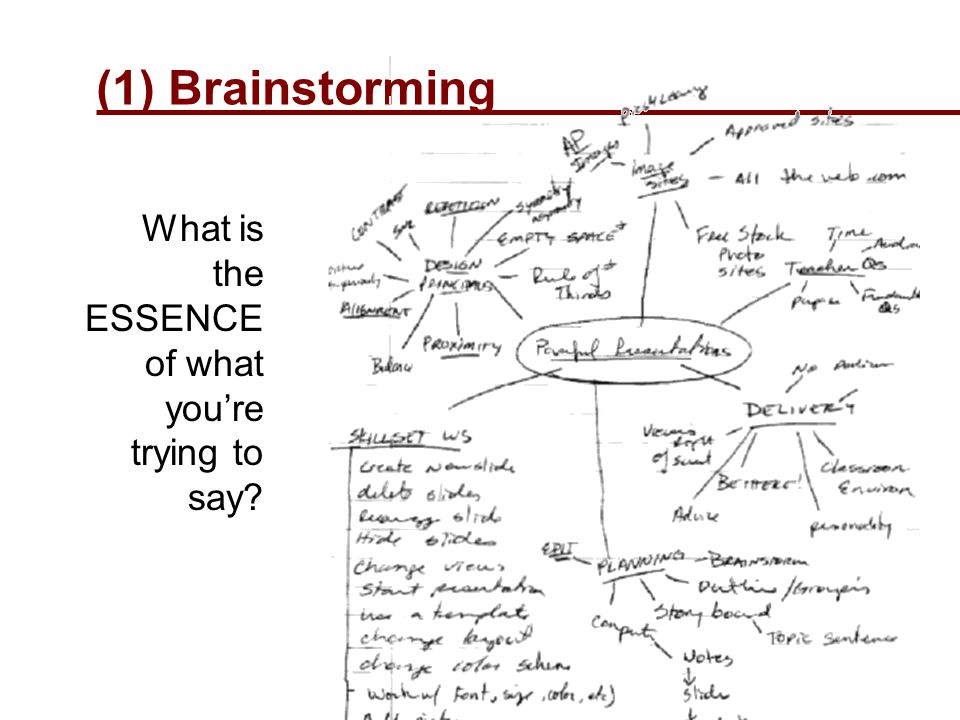 (1) Brainstorming
What is
the
ESSENCE
of what
you’re
trying to
say?
AP
Images
Image
Sites
Approved Sites
All the web.com
Free Stock
Photo
sites
Time
Teacher Qs
Purpose
Qs
CONTRAST
SIZE
REPETITION
EMPTY SPACE*
Rule of*
Thirds
DESIGN
PRINCIPALS
ALIGNMENT
Balance
PROXIMITY
Powerful Presentations
DELIVERY
No
Viewers
Right
of
BE THERE!
Advice
Classroom
Environ
personality
SKILLSET WS
Create New slide
delete slides
slide
Hide slides
Change views
Start presentation
Use a template
change layout
change color scheme
Work w/ Font, size, color, etc)
EDIT
PLANNING
BRAINSTORM
Outline/Grouping
Story board
TOPIC SENTENCE
Notes
slide